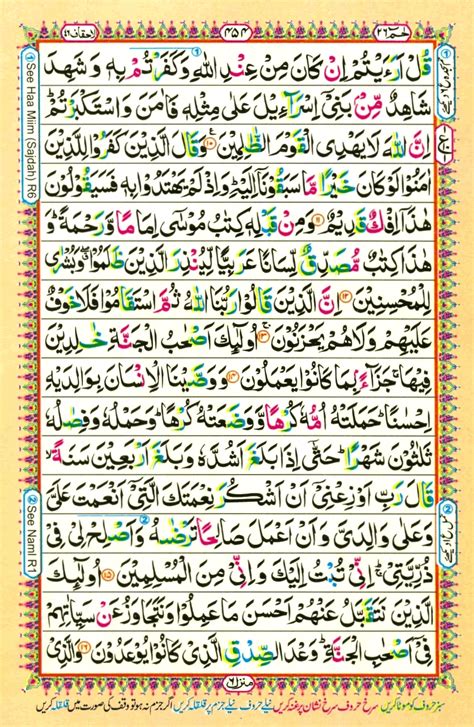 الاحقاف ٤٦ ٤٥٤ حٰمٓ ٢٦
قُلْ اَرَءَيْتُمْ اِنْ كَانَ مِنْ عِنْدِ اللّٰهِ وَكَفَرْتُمْ بِهٖ وَشَهِدَ
شَاهِدٌ مِّنْۢ بَنِيْٓ اِسْرَآءِيْلَ عَلٰى مِثْلِهٖ فَاٰمَنَ وَاسْتَكْبَرْتُمْ ؕ
اِنَّ اللّٰهَ لَا يَهْدِى الْقَوْمَ الظّٰلِمِيْنَ ۝۱۰ وَقَالَ الَّذِيْنَ كَفَرُوْا لِلَّذِيْنَ
اٰمَنُوْا لَوْ كَانَ خَيْرًا مَّا سَبَقُوْنَآ اِلَيْهِ ؕ وَاِذْ لَمْ يَهْتَدُوْا بِهٖ فَسَيَقُوْلُوْنَ
هٰذَآ اِفْكٌ قَدِيْمٌ ۝۱۱ وَمِنْ قَبْلِهٖ كِتٰبُ مُوْسٰٓى اِمَامًا وَّرَحْمَةً ؕ وَ
هٰذَا كِتٰبٌ مُّصَدِّقٌ لِّسَانًا عَرَبِيًّا لِّيُنْذِرَ الَّذِيْنَ ظَلَمُوْا ۖ وَبُشْرٰى
لِلْمُحْسِنِيْنَ ۝۱۲ اِنَّ الَّذِيْنَ قَالُوْا رَبُّنَا اللّٰهُ ثُمَّ اسْتَقَامُوْا فَلَا خَوْفٌ
عَلَيْهِمْ وَلَا هُمْ يَحْزَنُوْنَ ۝۱۳ اُولٰٓئِكَ اَصْحٰبُ الْجَنَّةِ خٰلِدِيْنَ
فِيْهَا ۚ جَزَآءًۢ بِمَا كَانُوْا يَعْمَلُوْنَ ۝۱۴ وَوَصَّيْنَا الْاِنْسَانَ بِوَالِدَيْهِ
اِحْسٰنًا ؕ حَمَلَتْهُ اُمُّهٗ كُرْهًا وَّوَضَعَتْهُ كُرْهًا ؕ وَحَمْلُهٗ وَفِصٰلُهٗ
ثَلٰثُوْنَ شَهْرًا ؕ حَتّٰٓى اِذَا بَلَغَ اَشُدَّهٗ وَبَلَغَ اَرْبَعِيْنَ سَنَةً ۙ
قَالَ رَبِّ اَوْزِعْنِيْٓ اَنْ اَشْكُرَ نِعْمَتَكَ الَّتِيْٓ اَنْعَمْتَ عَلَيَّ
وَعَلٰى وَالِدَيَّ وَاَنْ اَعْمَلَ صَالِحًا تَرْضٰىهُ وَاَصْلِحْ لِيْ فِيْ
ذُرِّيَّتِيْ ؕ اِنِّيْ تُبْتُ اِلَيْكَ وَاِنِّيْ مِنَ الْمُسْلِمِيْنَ ۝۱۵ اُولٰٓئِكَ
الَّذِيْنَ نَتَقَبَّلُ عَنْهُمْ اَحْسَنَ مَا عَمِلُوْا وَنَتَجَاوَزُ عَنْ سَيِّاٰتِهِمْ
فِيْٓ اَصْحٰبِ الْجَنَّةِ ؕ وَعْدَ الصِّدْقِ الَّذِيْ كَانُوْا يُوْعَدُوْنَ ۝۱۶
منزل ٦
سبز حروف کو موٹا کریں سرخ حروف سرخ نشان پر غنہ کریں نیلے حروف نیلے جزم پر قلقلہ کریں اگر جزم نہ ہو تو وقف کی صورت میں قلقلہ کریں
① See Haa Miim (Sajdah) R6
② See Naml R1